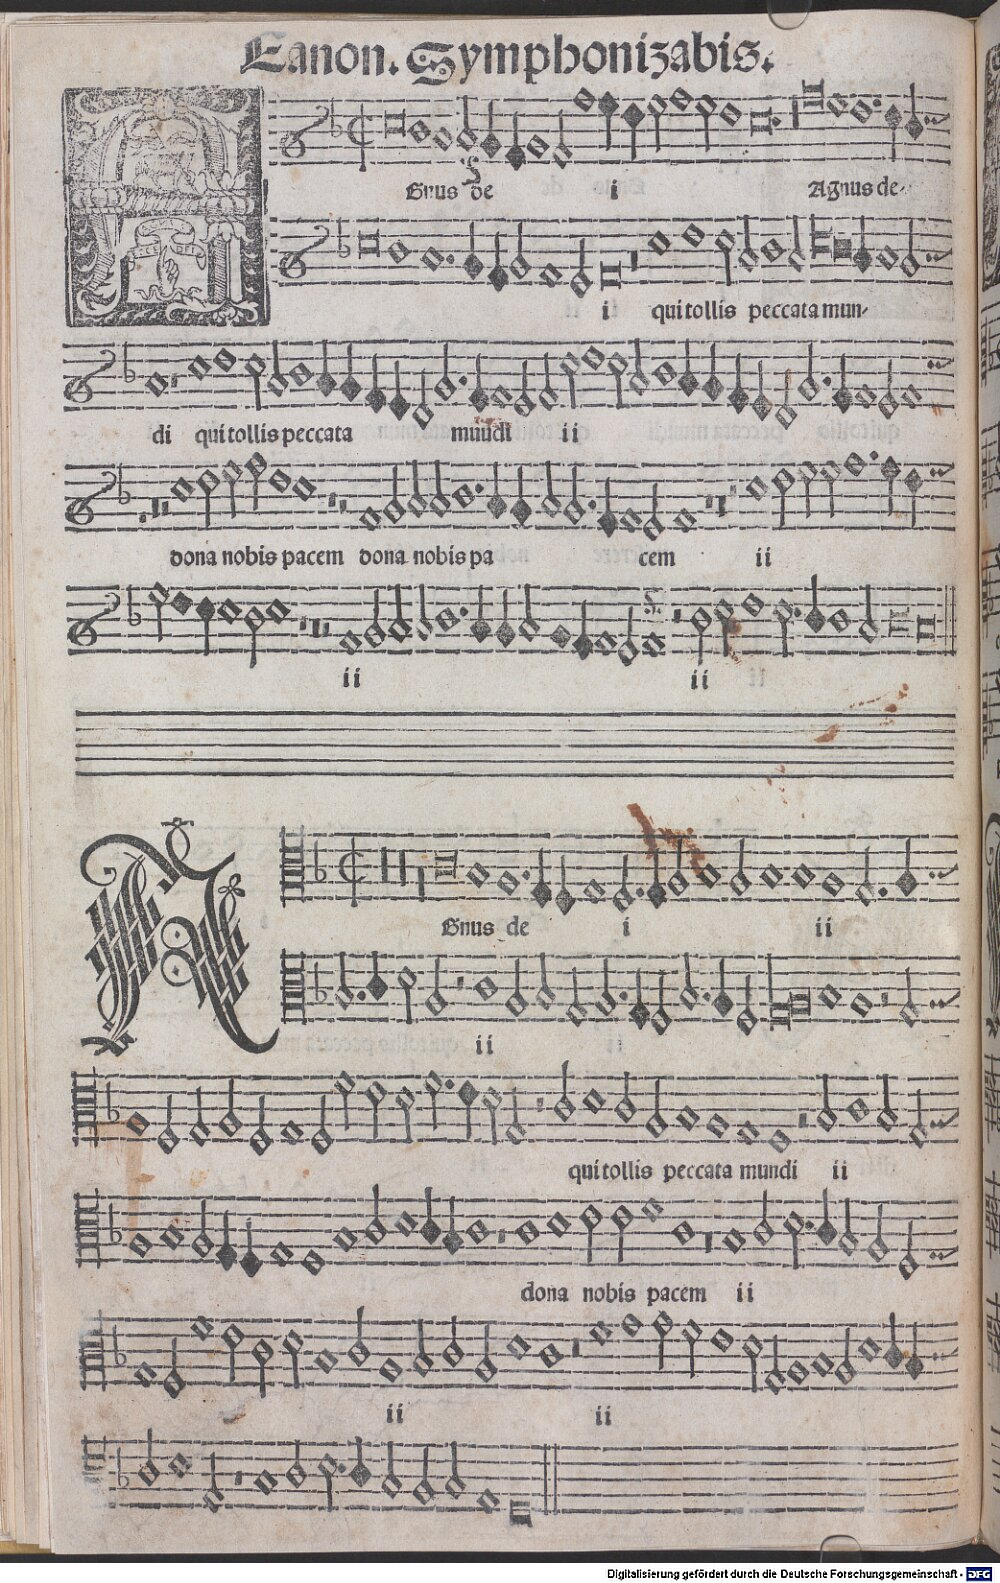 Canon. Symphonizabis.
A
Gnus de i Agnus de-
i qui tollis peccata mun-
di qui tollis peccata mundi ii
dona nobis pacem dona nobis pa cem ii
ii ii
A
Gnus de i ii
ii
qui tollis peccata mundi ii
dona nobis pacem ii
ii ii
Digitalisierung gefördert durch die Deutsche Forschungsgemeinschaft - DFG